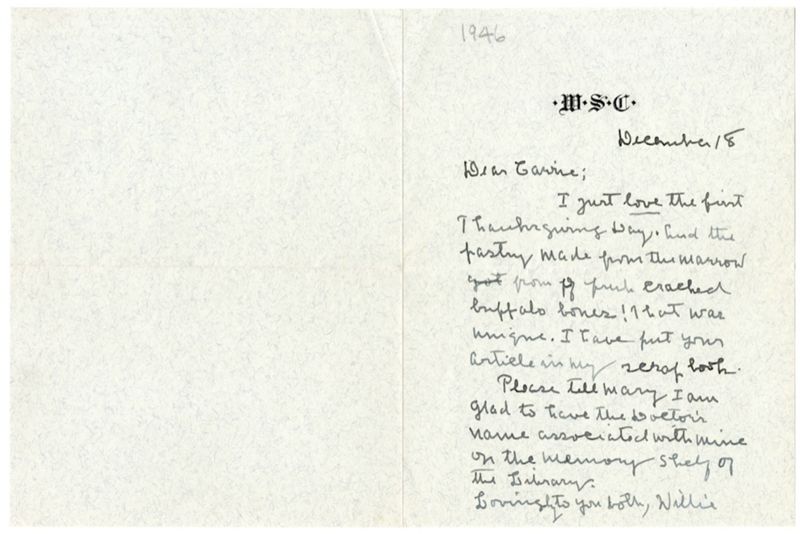 1946
·W·S·C·
December 18
Dear Carrie;
I just love the first
Thanksgiving Day. And the
pastry made from the marrow
got from of fresh cracked
buffalo bones! That was
unique. I have put your
article in my scrap book.
Please tell Mary I am
glad to have the Doctor's
name associated with mine
on the memory shelf of
the Library.
Lovingly to you both, Willie